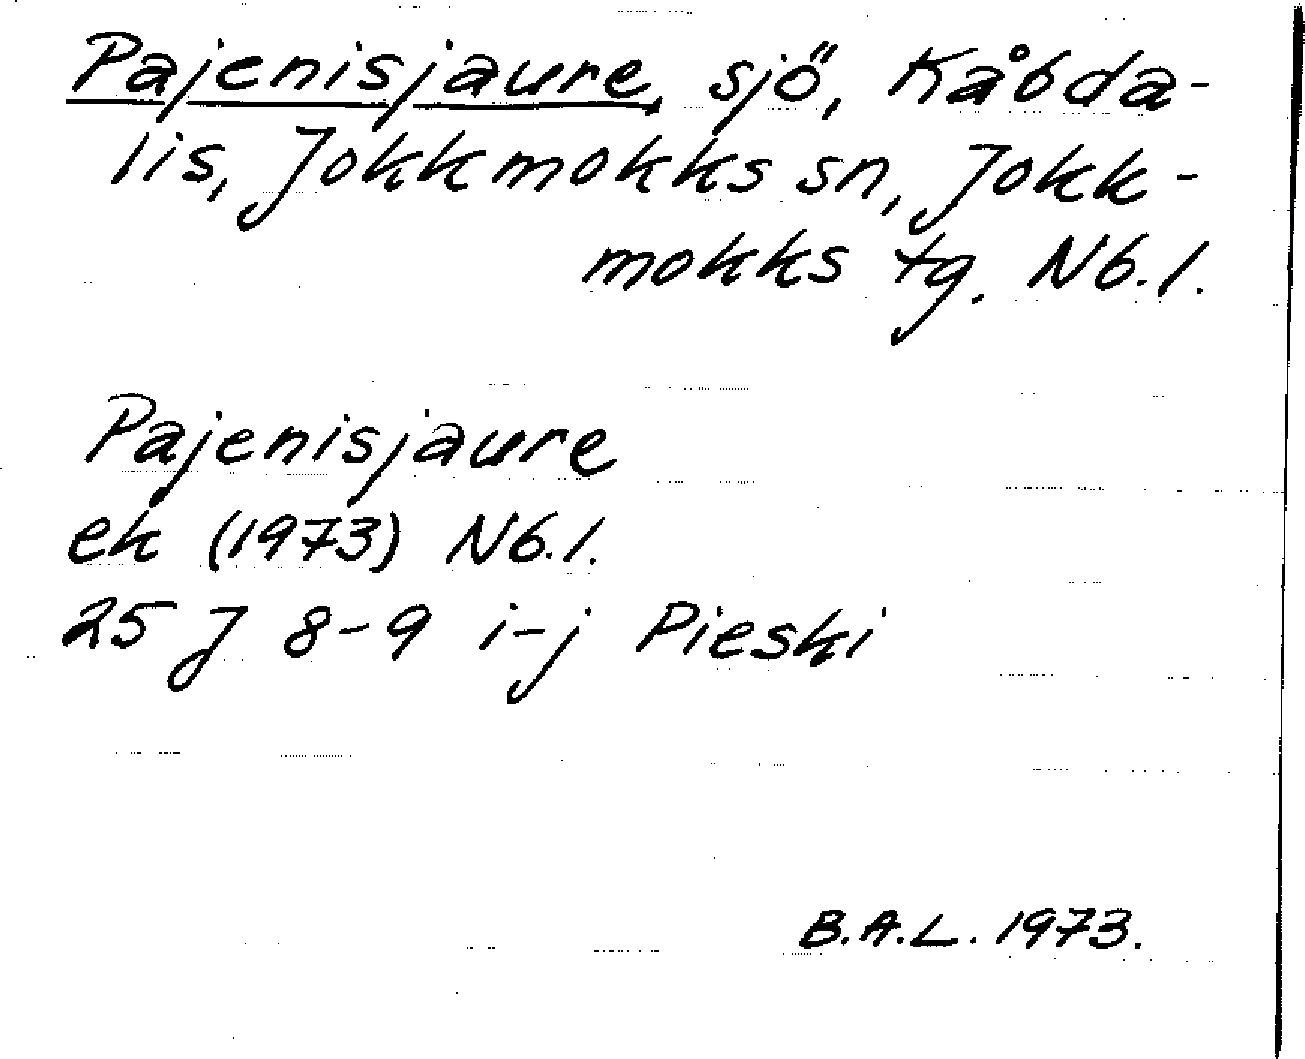 Pajenisjaure, sjö, Kåbda-
lis, Jokkmokks sn, Jokk-
mokks tg. Nb.l.
Pajenisjaure
ek (1973) Nb.l.
25 J 8-9 i-j Pieski
B.A.L. 1973.